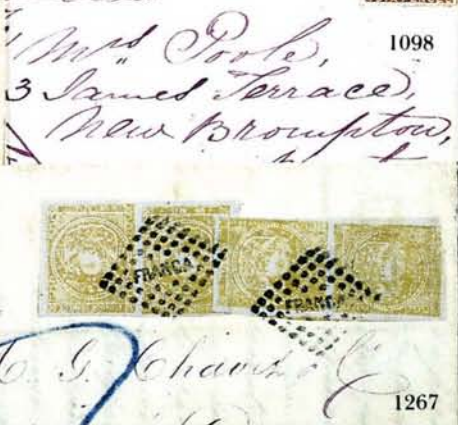 Mrs Poole, 1098
3 James Terrace,
New Brompton,
FRANCA FRANCA
G. Chavez
1267